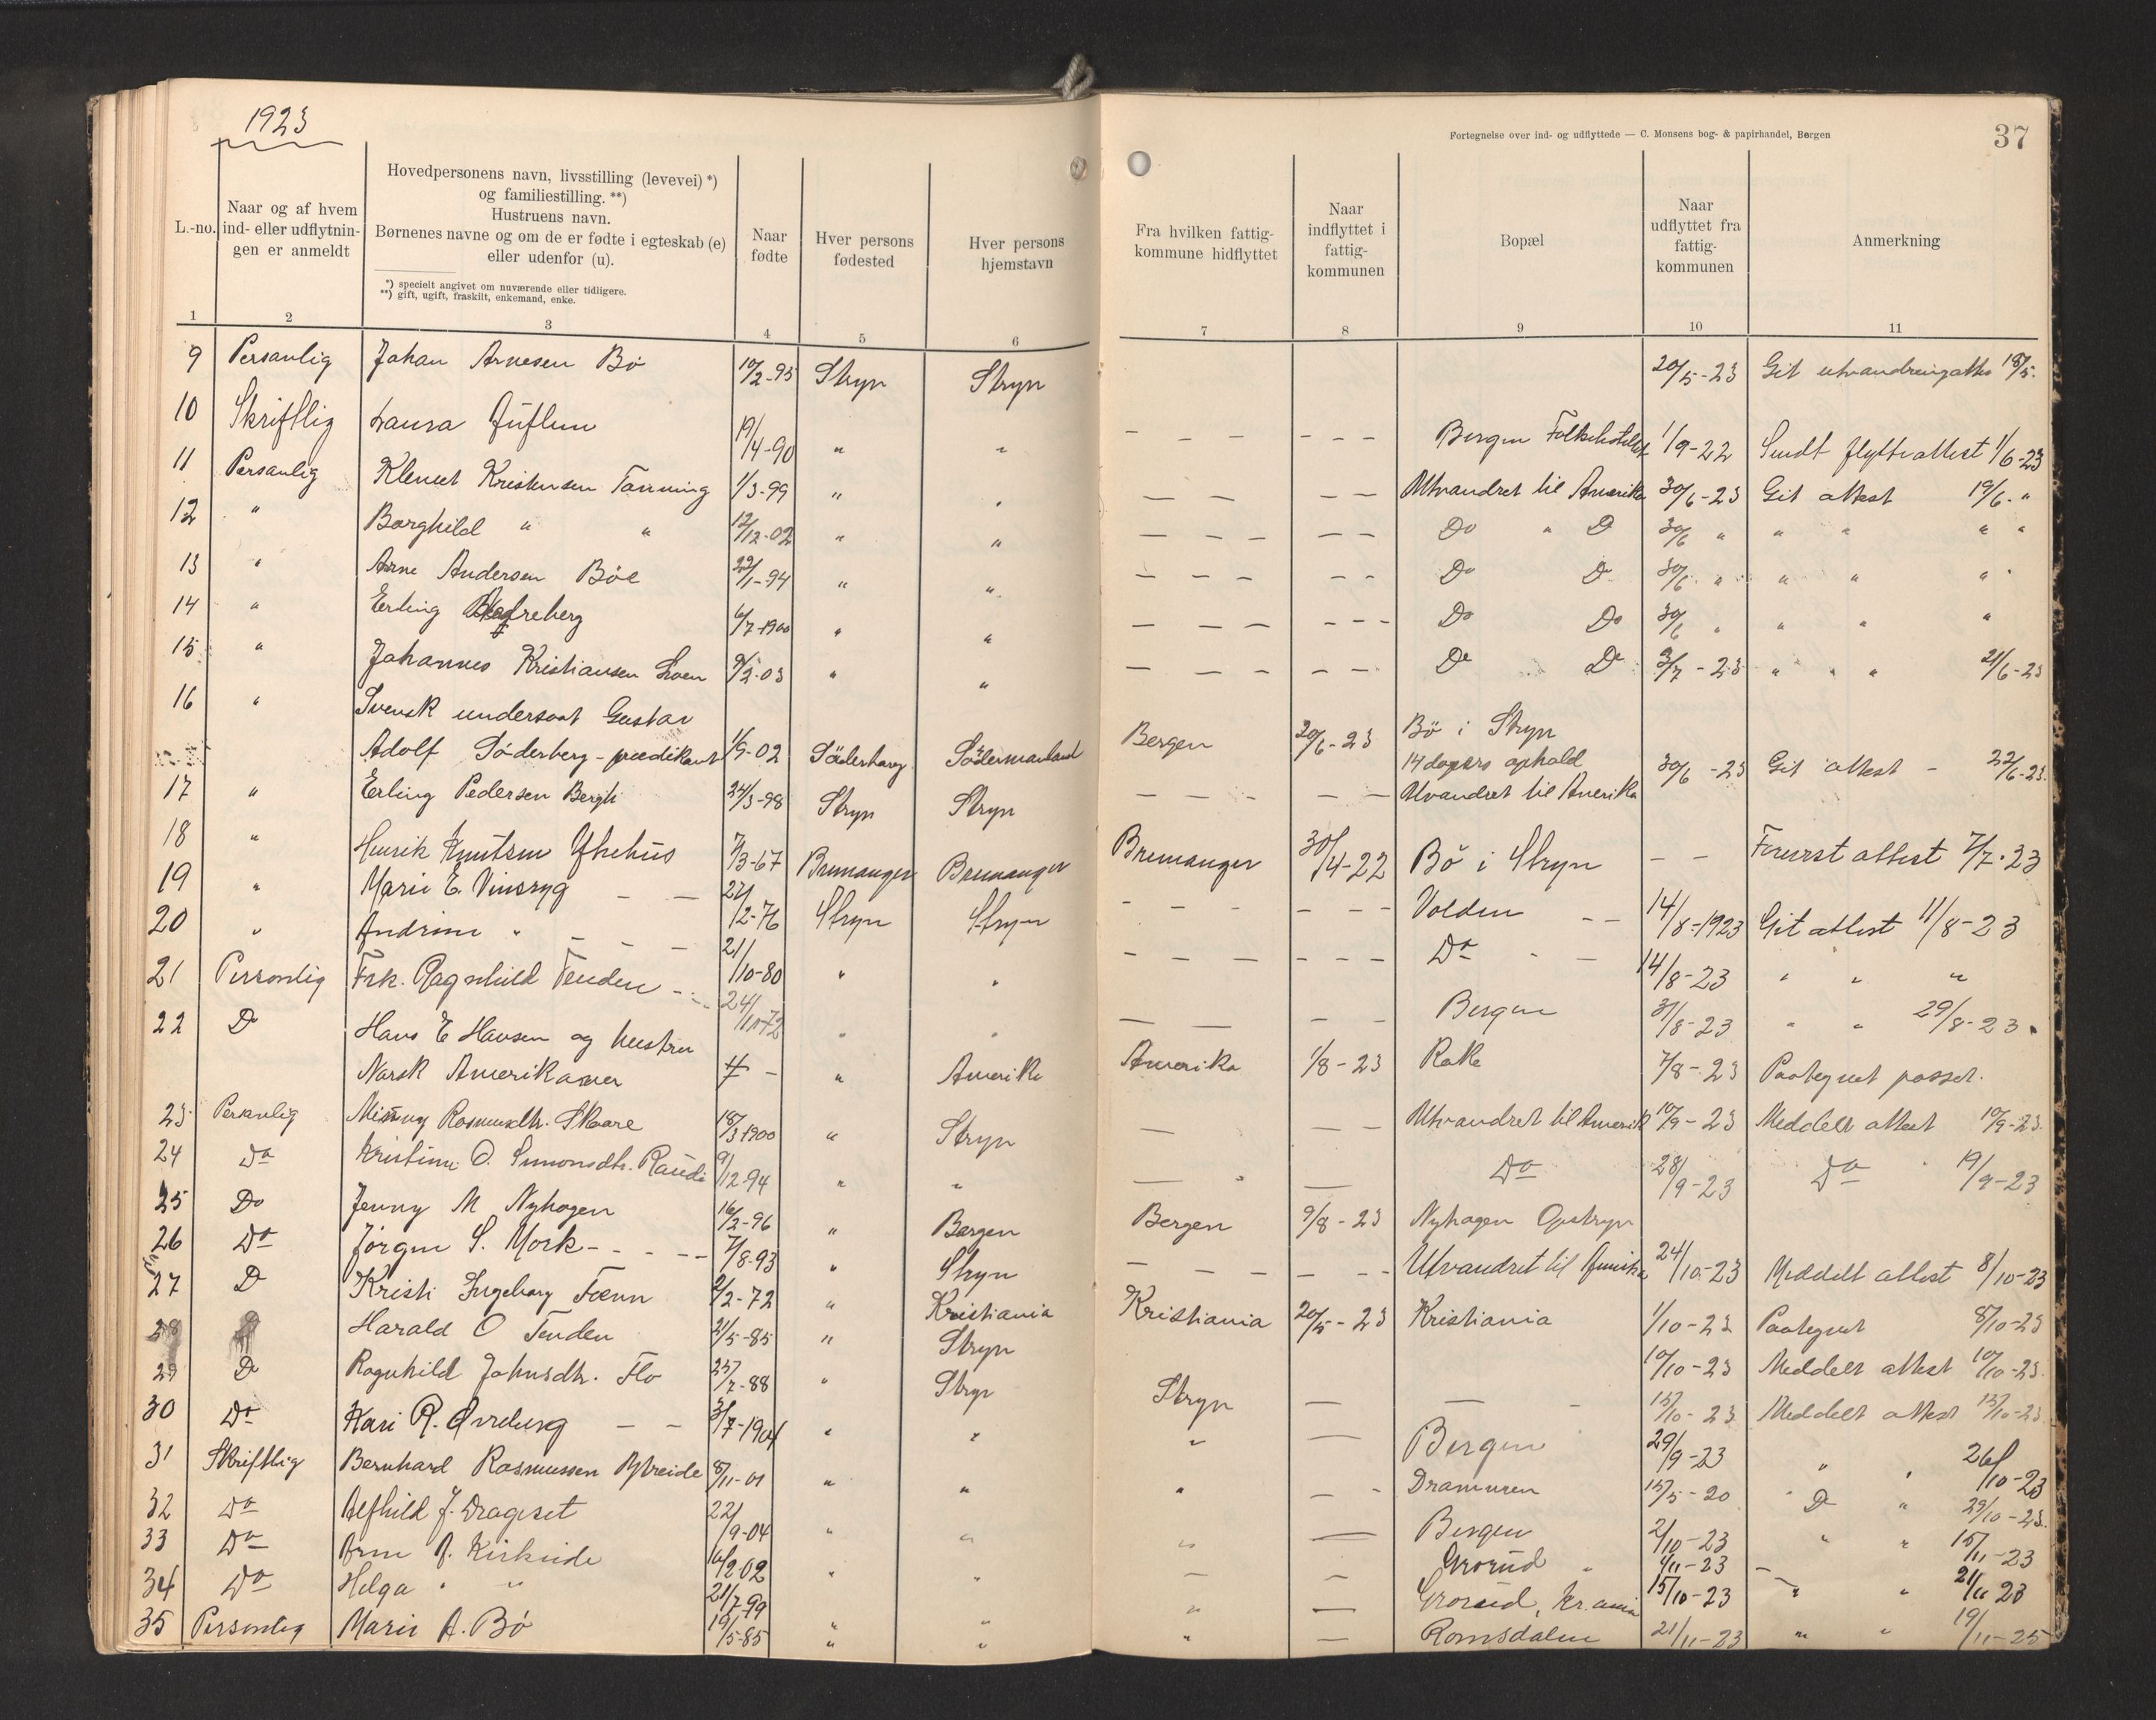 1923
Fortegnelse over ind- og udflyttede — C. Monsens bog- & papirhandel, Bergen
37
L.-no.
Naar og af hvem ind- eller udflytnin-gen er anmeldt
Hovedpersonens navn, livsstilling (levevei) *)
og familiestilling. **)
Hustruens navn.
Børnenes navne og om de er fødte i egteskab (e)
eller udenfor (u).
*) specielt angivet om nuværende eller tidligere.
**) gift, ugift, fraskilt, enkemand, enke.
Naar fødte
Hver persons fødested
Hver persons hjemstavn
Fra hvilken fattig-kommune hidflyttet
Naar indflyttet i fattig-kommunen
Bopæl
Naar udflyttet fra fattig-kommunen
Anmerkning
1 2 3 4 5 6 7 8 9 10 11
9 Personlig Johan Arnesen Bö 10/2-95 Stryn Stryn 20/5-23 Git utvandringattes 18/5.
10 Skriftlig Laura 19/4-90 " " — — — — — — Bergen 1/9-22 Sendt flytteattest 1/6-23
11 Personlig Klemet Kristensen Tonning 1/3-99 " " — — — — Utvandret til Amerika 30/6-23 Git attest 19/6. "
12 " Borghild " " 12/12-02 " " — — — — — Do " D 30/6 " " " " "
13 " Arne Andersen Böe 22/1-94 " " — — — — — Do D 30/6 " " " "
14 " Erling 6/7-1900 " " — — — — — — Do Do 30/6 " " " "
15 " Johannes Kristiansen Loen 9/2-03 " " — — — — — Do Do 3/7-23 " " " 21/6-23
16 " Svensk undersaat Gustav
Adolf Söderberg - prædikant 1/9-02 Söderberg Södermanland Bergen 20/6-23 Bö i Stryn
14 dagers ophold 30/6-23 Git attest — 22/6-23.
17 " Erling Pedersen Bergh 24/3-98 Stryn Stryn — — — — — Utvandret til Amerika
18 " Henrik Knutsen Ytrehus 7/3-67 Bremanger Bremanger Bremanger 30/4-22 Bö i Stryn — — attest 7/7-23
19 " Marie E. Vinsryg — — 22/12-76 Stryn Stryn — — — — — — Volden — — 14/8-1923 Git attest 11/8-23
20 " Andrine " — — — 21/10-80 " " — — — — — — Do — — 14/8-23 " " "
21 Personlig Frk. Ragnhild Tenden 24/10-72 " " — — — — Bergen 31/8-23 " " 29/8-23.
22 D Hans E Hansen og hustru
Norsk Amerikaner — " Amerika Amerika 1/8-23 Rake 7/8-23 Paategnet passet.
23 Personlig Rasmusdtr. Skaare 18/3 1900 " Stryn — — — Utvandret til Amerik 10/9-23 Meddelt attest 10/9-23.
24 Do Kristine O. Simonsdtr. Raudi 9/12-94 " " — " — Do 28/9-23 Do 19/9-23
25 Do Jenny M Nyhagen 16/2-96 " Bergen Bergen 9/8-23 Nyhagen Opstryn
26 Do Jörgen S. Mork 7/8-93 " Stryn — — — — — Utvandret til Amerika 24/10-23 Meddelt attest 8/10-23
27 D Kristi Ingeborg Tænn 2/2-72 " Kristiania Kristiania 20/5-23 Kristiania 1/10-23 Paategnet 8/10-23
28 Harald O Tenden 21/5-85 " Stryn 10/10-23 Meddelt attest 10/10-23.
29 D Ragnhild Johnsdtr. Flo 25/7-88 " Stryn Stryn — — 15/10-23 Meddelt attest 15/10-23.
30 Do Kari R. Övreberg — — 3/7-1904 " " " — Bergen 29/9-23 " " 26/10-23
31 Skriftlig Bernhard Rasmussen Ytreide 8/11-01 " " " — — Drammen 15/5-20 " D " 29/10-23.
32 Do Alfhild J. Drageset 22/9-04 " " " — Bergen 2/10-23 " " 15/11-23
33 Do Arne A. Kirkeide 16/2 02 " " — — Grorud " 4/11-23 —
34 Do Helga " " 21/7-99 " " " — Grorud, Kr.ania 15/10-23 " " 21/11 23
35 Personlig Marie A. Bö 19/5-85 " " " — Romsdalen 21/11-23 " " 19/11-25